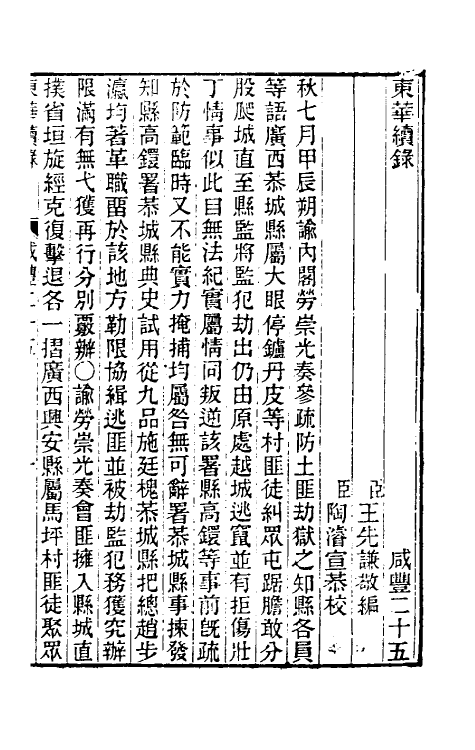 東華續錄　咸豐二十五
臣王先謙敬編
臣陶濬宣恭校
秋七月甲辰朔諭內閣勞崇光奏參疏防土匪劫獄之知縣各員
等語廣西恭城縣屬大眼停鑪丹皮等村匪徒糾眾屯踞膽敢分
股爬城直至縣監將監犯劫出仍由原處越城逃竄並有拒傷壯
丁情事似此目無法紀實屬情同叛逆該署縣高鎧等事前旣疏
於防範臨時又不能實力掩捕均屬咎無可辭署恭城縣事揀發
知縣高鎧署恭城縣典史試用從九品施廷槐恭城縣把總趙步
瀛均著革職畱於該地方勒限協緝逃匪並被劫監犯務獲究辦
限滿有無弋獲再行分別覈辦〇諭勞崇光奏會匪擁入縣城直
撲省垣旋經克復擊退各一摺廣西興安縣屬馬坪村匪徒聚眾
東華續錄　咸豐二十五　一